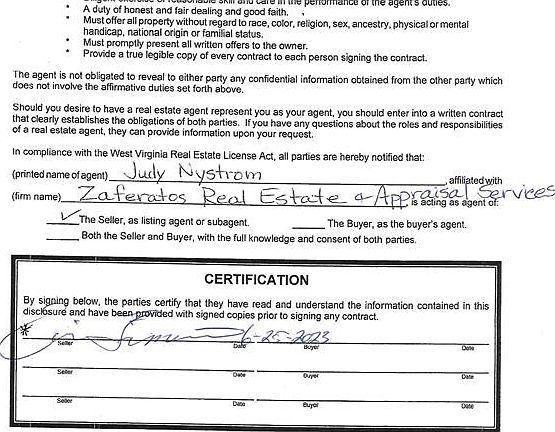 * A duty of honest and fair dealing and good faith.
* Must offer all property without regard to race, color, religion, sex, ancestry, physical or mental
handicap, national origin or familial status.
* Must promptly present all written offers to the owner.
* Provide a true legible copy of every contract to each person signing the contract.
The agent is not obligated to reveal to either party any confidential information obtained from the other party which
does not involve the affirmative duties set forth above.
Should you desire to have a real estate agent represent you as your agent, you should enter into a written contract
that clearly establishes the obligations of both parties. If you have any questions about the roles and responsibilities
of a real estate agent, they can provide information upon your request.
In compliance with the West Virginia Real Estate License Act, all parties are hereby notified that:
(printed name of agent) Judy Nystrom, affiliated with
(firm name) Zaferatos Real Estate & Appraisal Services is acting as agent of:
✓ The Seller, as listing agent or subagent. The Buyer, as the buyer's agent.
Both the Seller and Buyer, with the full knowledge and consent of both parties.
CERTIFICATION
By signing below, the parties certify that they have read and understand the information contained in this
disclosure and have been provided with signed copies prior to signing any contract.
* 6-25-2023
Seller Date Buyer Date
Seller Date Buyer Date
Seller Date Buyer Date